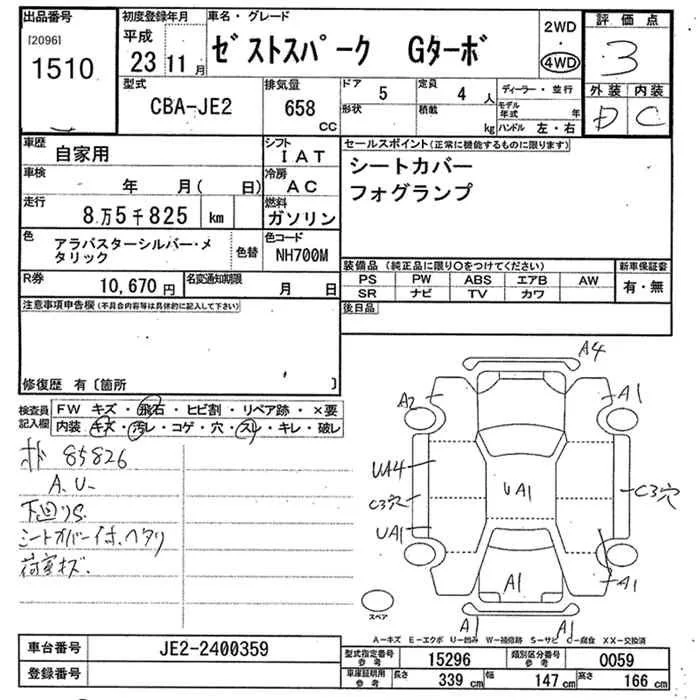 出品番号
[2096]
1510
初度登録年月
平成
23 11 月
車名・グレード
ゼストスパーク Gターボ
2WD
・
4WD
評価点
3
外装 内装
D C
型式
CBA-JE2
排気量
658
CC
ドア 5
形状
定員 4 人
積載 kg
ディーラー・並行
モデル年式 年
ハンドル 左・右
車歴
自家用
シフト
IAT
車検
年 月( 日)
冷房
AC
走行
8万5千825 km
燃料
ガソリン
色
アラバスターシルバー・メ
タリック
色替
色コード
NH700M
R券
10,670 円
名変通知期限
月 日
セールスポイント(正常に機能するものに限ります)
シートカバー
フォグランプ
装備品(純正品に限り○をつけてください)
新車保証書
PS PW ABS エアB AW
SR ナビ TV カワ
有・無
後日品
注意事項申告欄(不具合内容等は具体的に記入して下さい)
修復歴 有〔箇所 〕
検査員
記入欄
FW キズ・飛石・ヒビ割・リペア跡・×要
内装 キズ・汚レ・コゲ・穴・スレ・キレ・破レ
85826
A.U-
下回りS
シートカバー付.ヘタリ
荷室キズ.
A4
A2
A1
UA4
C3穴
UA1
UA1
C3穴
A1
A1
A1
A1
スペア
A-キズ E-エクボ U-凹み W-補修跡 S-サビ C-腐食 XX-交換済
車台番号
JE2-2400359
登録番号
型式指定番号
参考
15296
類別区分番号
参考
0059
車庫証明用
参考
長さ 339 cm
幅 147 cm
高さ 166 cm